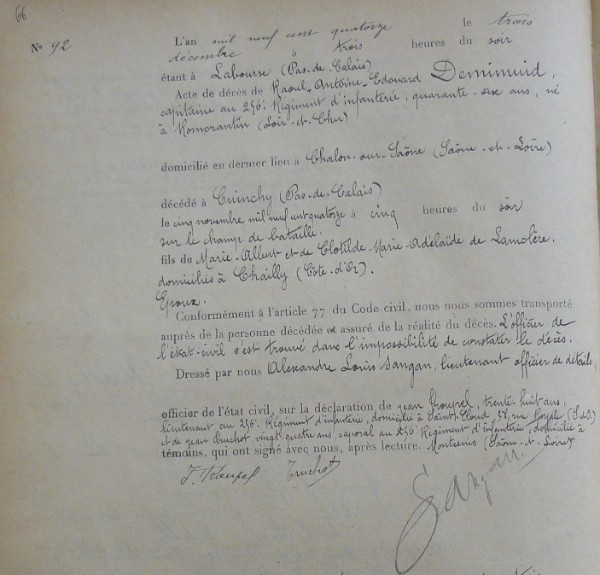 66
N° 92
L'an mil neuf cent quatorze le trois
décembre à trois heures du soir
étant à Labourse (Pas-de-Calais)
Acte de décès de Raoul-Antoine-Edouard Demimuid,
capitaine au 256e Régiment d'infanterie, quarante-six ans, né
à Romorantin (Loir-et-Cher)
domicilié en dernier lieu à Chalon-sur-Saône (Saône-et-Loire)
décédé à Cuinchy (Pas-de-Calais)
le cinq novembre mil neuf cent quatorze à cinq heures du soir
sur le champ de bataille.
fils de Marie-Albert et de Clotilde-Marie-Adélaïde de Lamolère,
domiciliés à Chailly (Côte-d'Or).
Epoux.
Conformément à l'article 77 du Code civil, nous nous sommes transporté
auprès de la personne décédée et assuré de la réalité du décès. L'officier de
l'état-civil s'est trouvé dans l'impossibilité de constater le décès.
Dressé par nous Alexandre Louis Sangan, lieutenant officier de détails,
officier de l'état civil, sur la déclaration de Jean, trente huit ans,
lieutenant au 256e Régiment d'infanterie, domicilié à Saint-Cloud, rue Royale (S-&-O)
et de Jean Truchot vingt-quatre ans caporal au 256e Régiment d'infanterie, domicilié à
témoins, qui ont signé avec nous, après lecture. Montcenis (Saône-et-Loire)
J. Truchot
Sangan